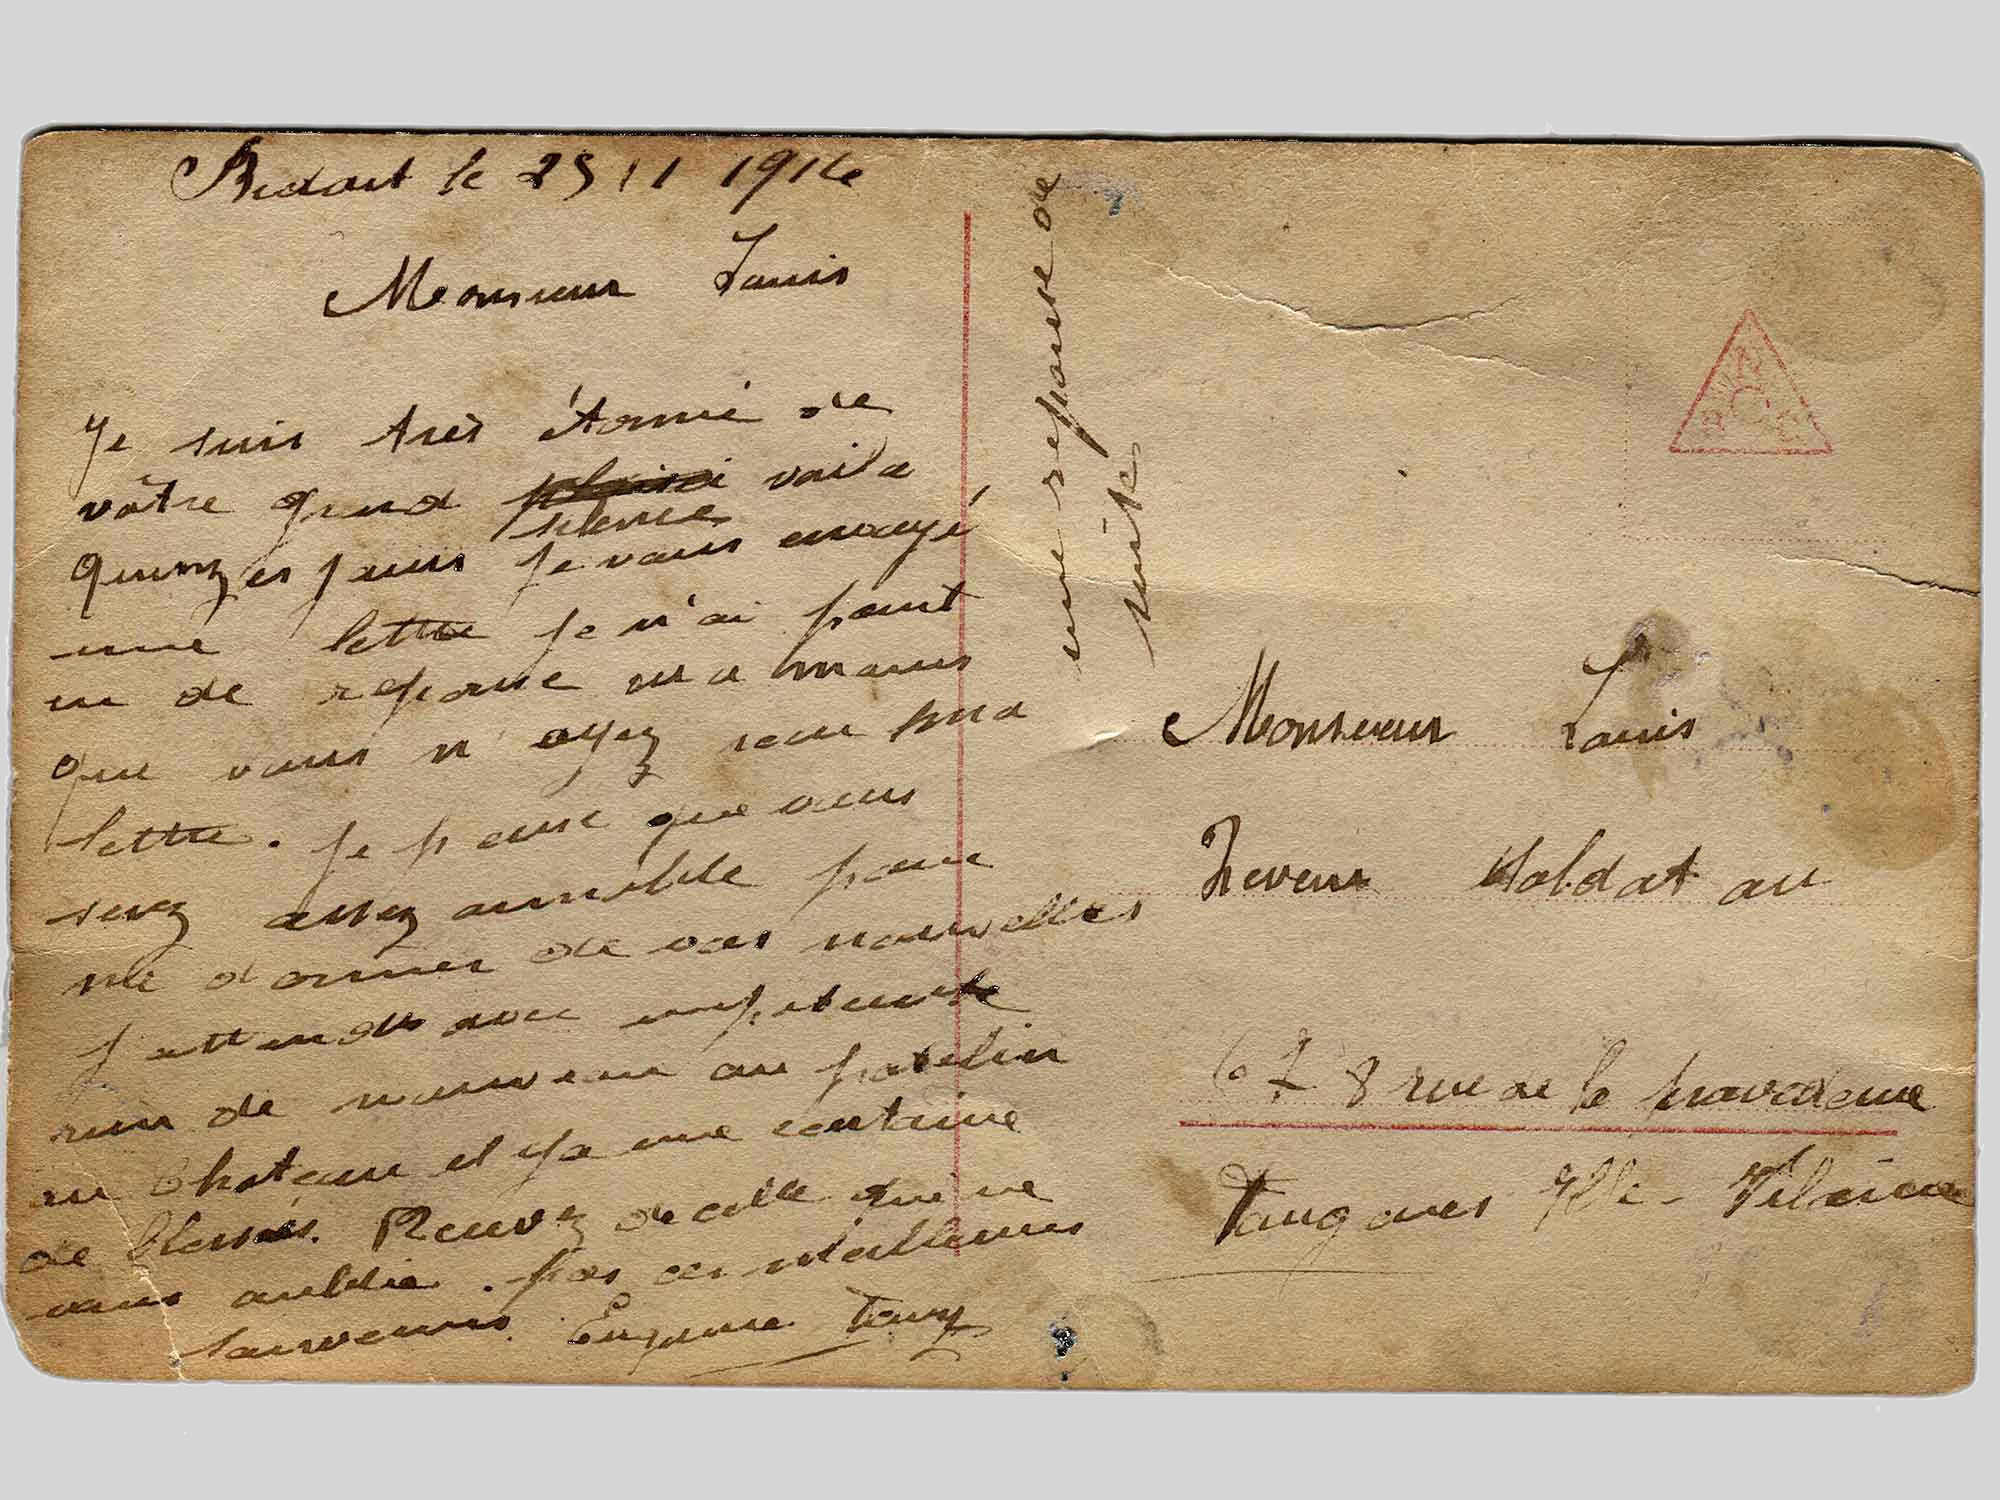 Bidart le 25 11 1914
Monsieur Louis
Je suis très étonné de
vôtre grand voila
silence
quinzes jours je vous envoyé
une lettre je n'ai point
eu de reponse
que vous n'ayez ma
lettre. Je pense que vous
serez assez aimable pour
me donner de vos nouvelles
J'attends avec
rien de nouveau au patelin
au Chateau et y a une centaine
de blessés. Recevez de celle qui ne
vous oublie pas ces meilleures
souvenirs.
une reponse de
suite
Monsieur Louis
soldat au
67 8 rue de la
Ille-Vilaine